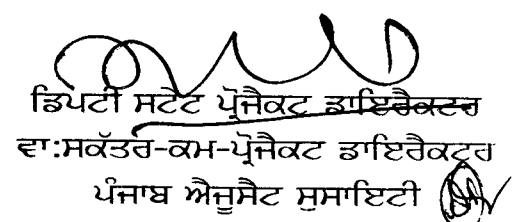 ਡਿਪਟੀ ਸਟੇਟ ਪ੍ਰੋਜੈਕਟ ਡਾਇਰੈਕਟਰ
ਵਾ:ਸਕੱਤਰ-ਕਮ-ਪ੍ਰੋਜੈਕਟ ਡਾਇਰੈਕਟਰ
ਪੰਜਾਬ ਐਜੂਸੈਟ ਸੁਸਾਇਟੀ